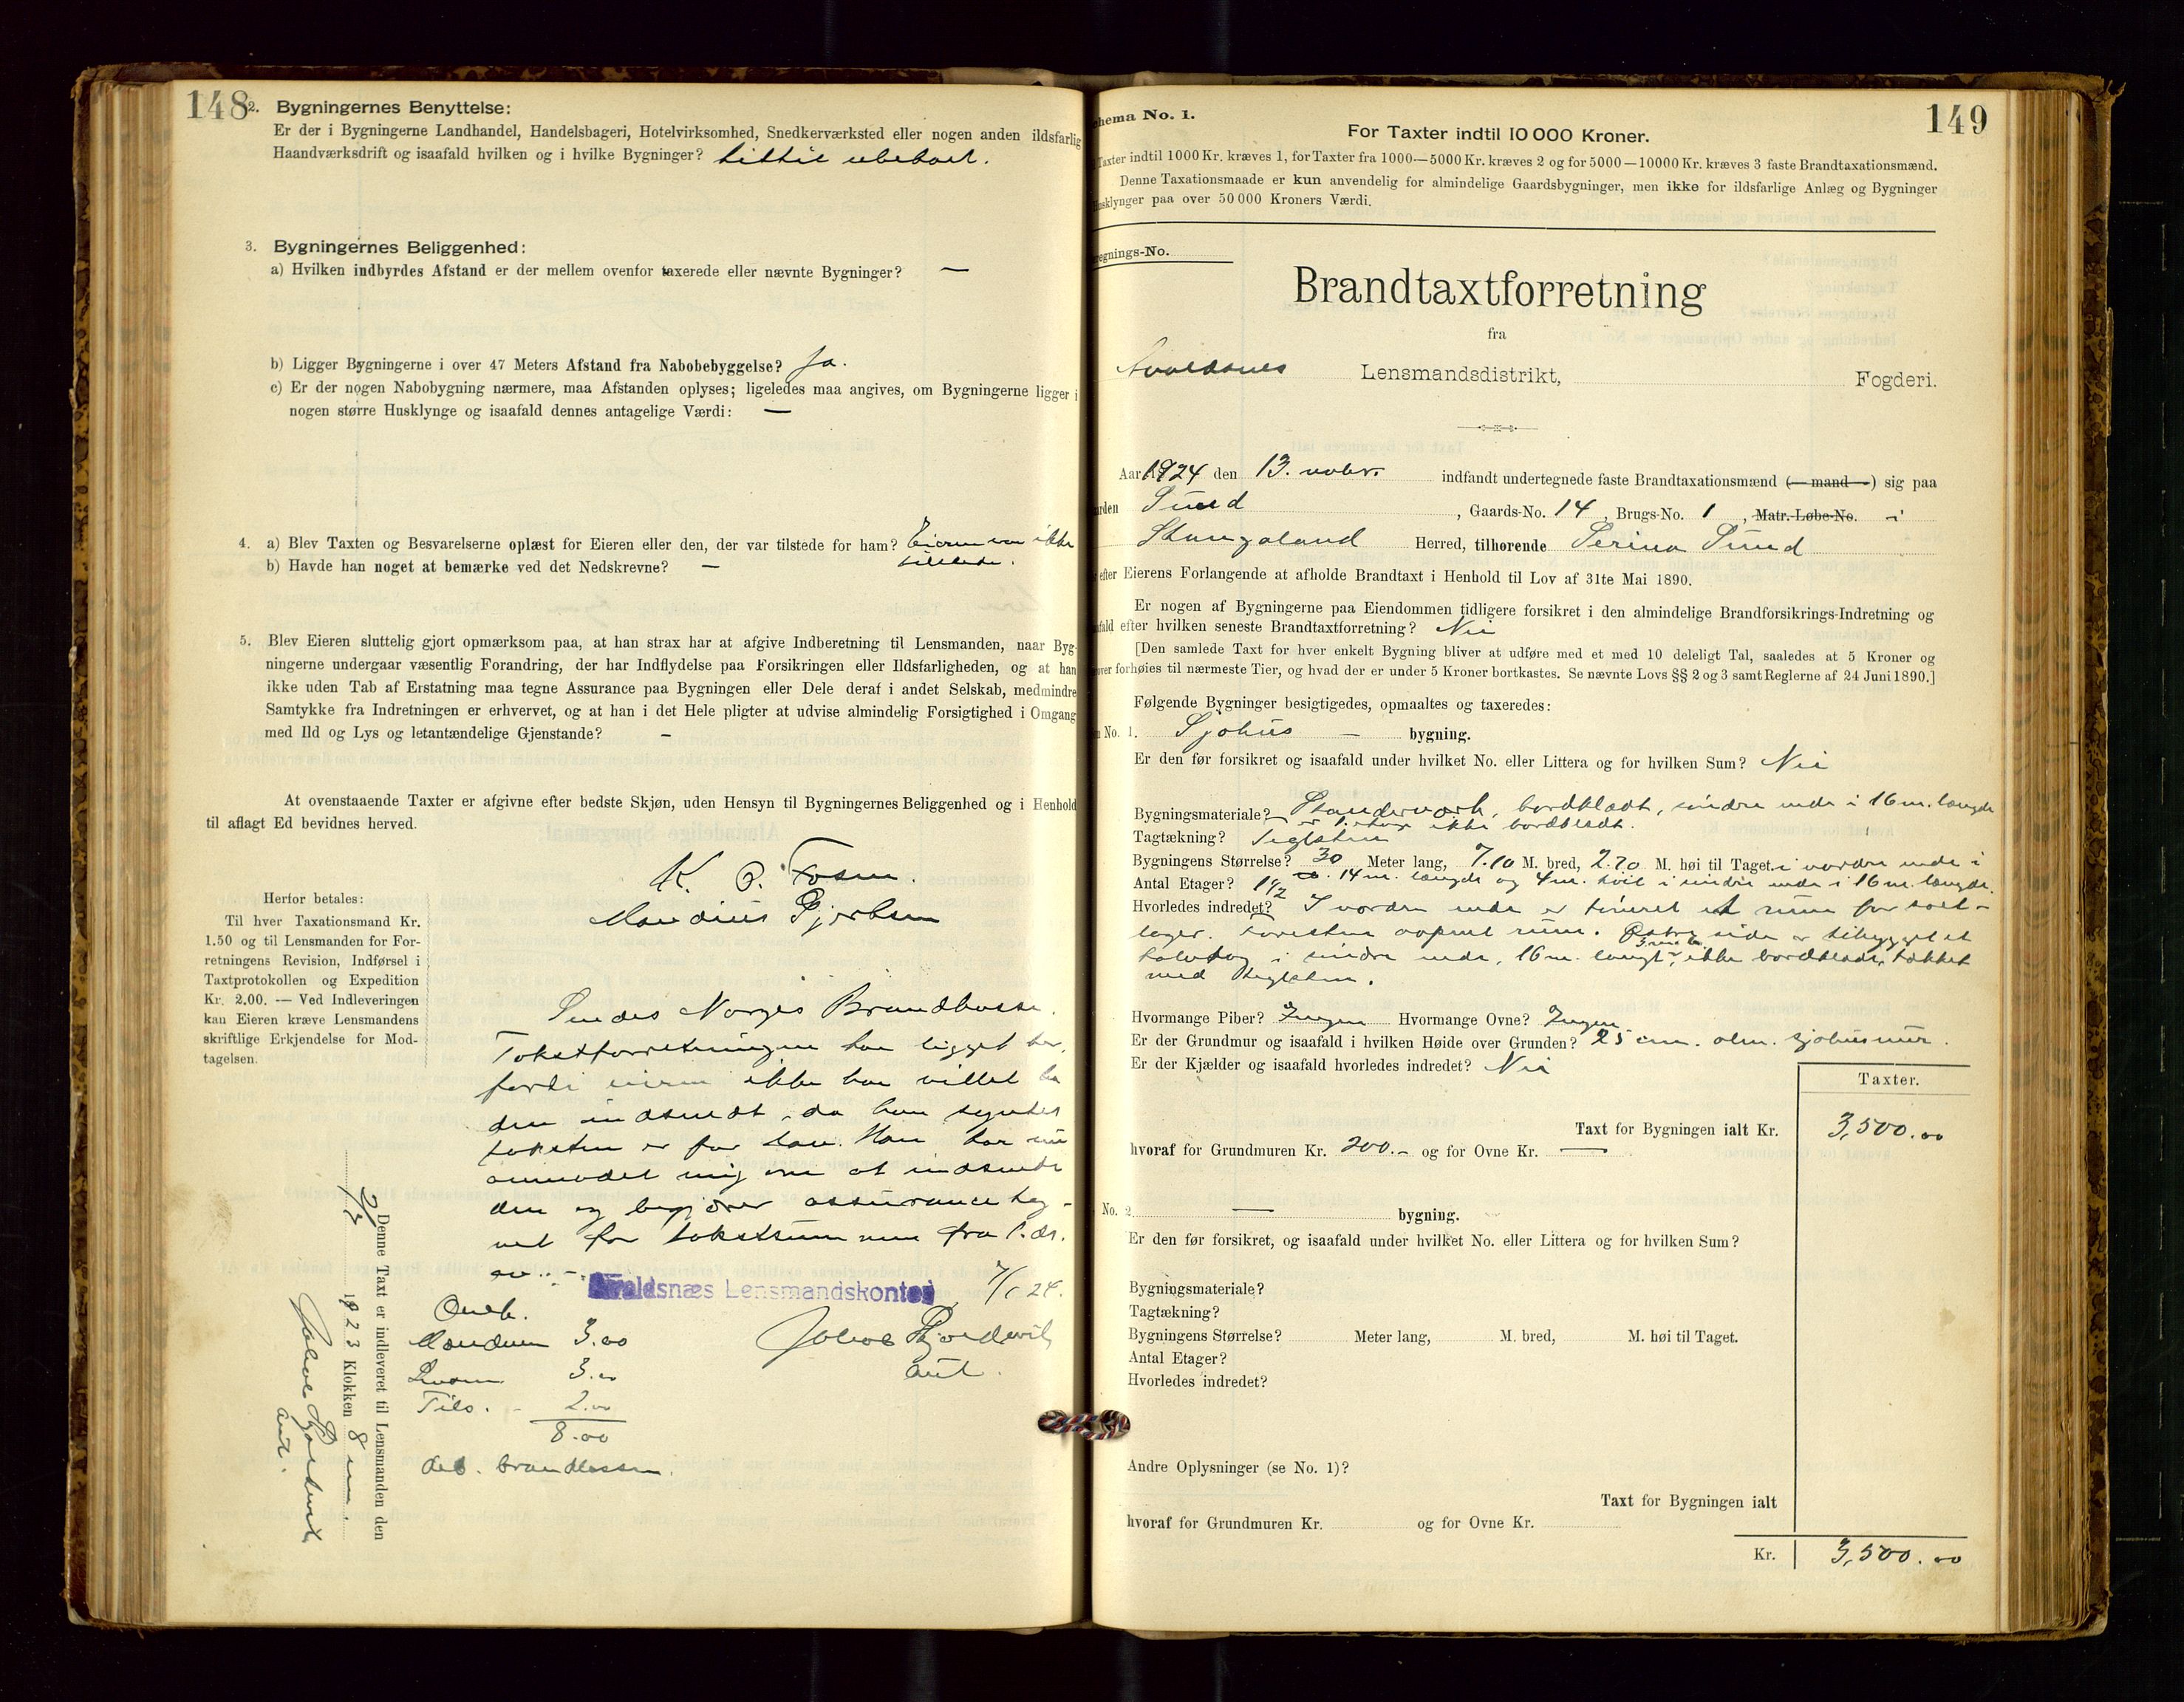 148
2. Bygningernes Benyttelse:
Er der i Bygningerne Landhandel, Handelsbageri, Hotelvirksomhed, Snedkerværksted eller nogen anden ildsfarlig
Haandværksdrift og isaafald hvilken og i hvilke Bygninger?
3. Bygningernes Beliggenhed:
a) Hvilken indbyrdes Afstand er der mellem ovenfor taxerede eller nævnte Bygninger? —
b) Ligger Bygningerne i over 47 Meters Afstand fra Nabobebyggelse? Ja.
c) Er der nogen Nabobygning nærmere, maa Afstanden oplyses; ligeledes maa angives, om Bygningerne ligger i
nogen større Husklynge og isaafald dennes antagelige Værdi: —
4. a) Blev Taxten og Besvarelserne oplæst for Eieren eller den, der var tilstede for ham? Eieren var ikke
tilstede.
b) Havde han noget at bemærke ved det Nedskrevne? —
5. Blev Eieren sluttelig gjort opmærksom paa, at han strax har at afgive Indberetning til Lensmanden, naar Byg-
ningerne undergaar væsentlig Forandring, der har Indflydelse paa Forsikringen eller Ildsfarligheden, og at han
ikke uden Tab af Erstatning maa tegne Assurance paa Bygningen eller Dele deraf i andet Selskab, medmindre
Samtykke fra Indretningen er erhvervet, og at han i det Hele pligter at udvise almindelig Forsigtighed i Omgang
med Ild og Lys og letantændelige Gjenstande? —
At ovenstaaende Taxter er afgivne efter bedste Skjøn, uden Hensyn til Bygningernes Beliggenhed og i Henhold
til aflagt Ed bevidnes herved.
K. O. Fosen.
Herfor betales:
Til hver Taxationsmand Kr.
1.50 og til Lensmanden for For-
retningens Revision, Indførsel i
Taxtprotokollen og Expedition
Kr. 2.00. — Ved Indleveringen
kan Eieren kræve Lensmandens
skriftlige Erkjendelse for Mod-
tagelsen.
Sendes Norges Brandkasse.
Takstforretningen har ligget her,
fordi eieren ikke har villet ha
den indsendt, da han syntes
taksten er for lav. Han har nu
anmodet mig om at indsende
den og begjærer assurance teg-
net for takstsummen fra 1. ds.
av. —
Avaldsnæs Lensmandskontor, 7/1 24.
3.00
3.00
Tils. - 2.00
8.00
Deb. brandkassen.
Denne Taxt er indleveret til Lensmanden den
1923 Klokken 8
149
Schema No. 1.
For Taxter indtil 10 000 Kroner.
Taxter indtil 1000 Kr. kræves 1, for Taxter fra 1000—5000 Kr. kræves 2 og for 5000—10000 Kr. kræves 3 faste Brandtaxationsmænd.
Denne Taxationsmaade er kun anvendelig for almindelige Gaardsbygninger, men ikke for ildsfarlige Anlæg og Bygninger
Husklynger paa over 50 000 Kroners Værdi.
egnings-No.
Brandtaxtforretning
fra
Avaldsnes Lensmandsdistrikt, Fogderi.
Aar 1924 den 13. novbr. indfandt undertegnede faste Brandtaxationsmænd (— mand —) sig paa
arden Sund, Gaards-No. 14, Brugs-No. 1, Matr.-Løbe-No. i
Stangaland Herred, tilhørende Serina Sund
efter Eierens Forlangende at afholde Brandtaxt i Henhold til Lov af 31te Mai 1890.
Er nogen af Bygningerne paa Eiendommen tidligere forsikret i den almindelige Brandforsikrings-Indretning og
afald efter hvilken seneste Brandtaxtforretning? Nei
[Den samlede Taxt for hver enkelt Bygning bliver at udføre med et med 10 deleligt Tal, saaledes at 5 Kroner og
over forhøies til nærmeste Tier, og hvad der er under 5 Kroner bortkastes. Se nævnte Lovs §§ 2 og 3 samt Reglerne af 24 Juni 1890.]
Følgende Bygninger besigtigedes, opmaaltes og taxeredes:
No. 1. Sjøhus — bygning.
Er den før forsikret og isaafald under hvilket No. eller Littera og for hvilken Sum? Nei
Bygningsmateriale? Standerverk, bordklædt, søndre ende i 16 m. længde
ikke bordklædt.
Tagtækning? Teglsten
Bygningens Størrelse? 30 Meter lang, 7.10 M. bred, 2.70 M. høi til Taget. i nordre ende i
Antal Etager? 1 1/2 14 m. længde og 4 m. høit i søndre ende i 16 m. længde.
Hvorledes indredet? I nordre ende er indredet et rum for salt-
lager. Forresten aapent rum. Østre side er tilbygget et
halvtag i søndre ende, 16 m. langt, ikke bordklædt, tækket
med teglsten.
Hvormange Piber? Ingen Hvormange Ovne? Ingen
Er der Grundmur og isaafald i hvilken Høide over Grunden? 25 cm. alm. sjøhusmur.
Er der Kjælder og isaafald hvorledes indredet? Nei
Taxter.
Taxt for Bygningen ialt Kr. 3,500.00
hvoraf for Grundmuren Kr. 200.- og for Ovne Kr. —
No. 2. — bygning.
Er den før forsikret, og isaafald under hvilket No. eller Littera og for hvilken Sum?
Bygningsmateriale?
Tagtækning?
Bygningens Størrelse? Meter lang, M. bred, M. høi til Taget.
Antal Etager?
Hvorledes indredet?
Andre Oplysninger (se No. 1)?
Taxt for Bygningen ialt
hvoraf for Grundmuren Kr. og for Ovne Kr.
Kr. 3,500.00